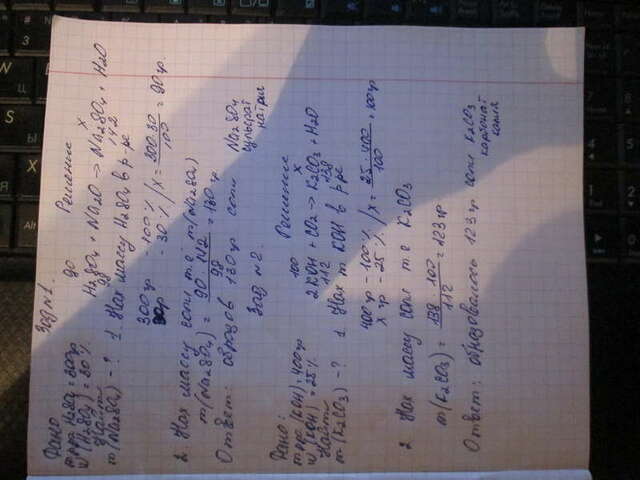 Зад №1.
Дано
m ppa H2SO4 = 300гр
W (H2SO4) = 30%
Найти
m (Na2SO4) - ?
Решение
90 x
H2SO4 + Na2O → Na2SO4 + H2O
98 142
1. Нах массу H2SO4 в р ре
300гр - 100%
30% / x = 300·30 / 100 = 90гр
2. Нах массу соли т.е. m(Na2SO4)
m(Na2SO4) = 90·142 / 98 = 130гр
Ответ: образов 130гр соли Na2SO4
сульфат
натрия
Зад №2.
Дано:
m ppa (KOH) = 400гр
W (KOH) = 25%
Найти
m (K2CO3) - ?
Решение
100 x
2KOH + CO2 → K2CO3 + H2O
112 138
1. Нах m KOH в р ре
400гр - 100%
x гр - 25% / x = 25·400 / 100 = 100гр
2 Нах массу соли т.е K2CO3
m(K2CO3) = 138·100 / 112 = 123гр
Ответ: образовалось 123гр соли K2CO3
карбонат
калия